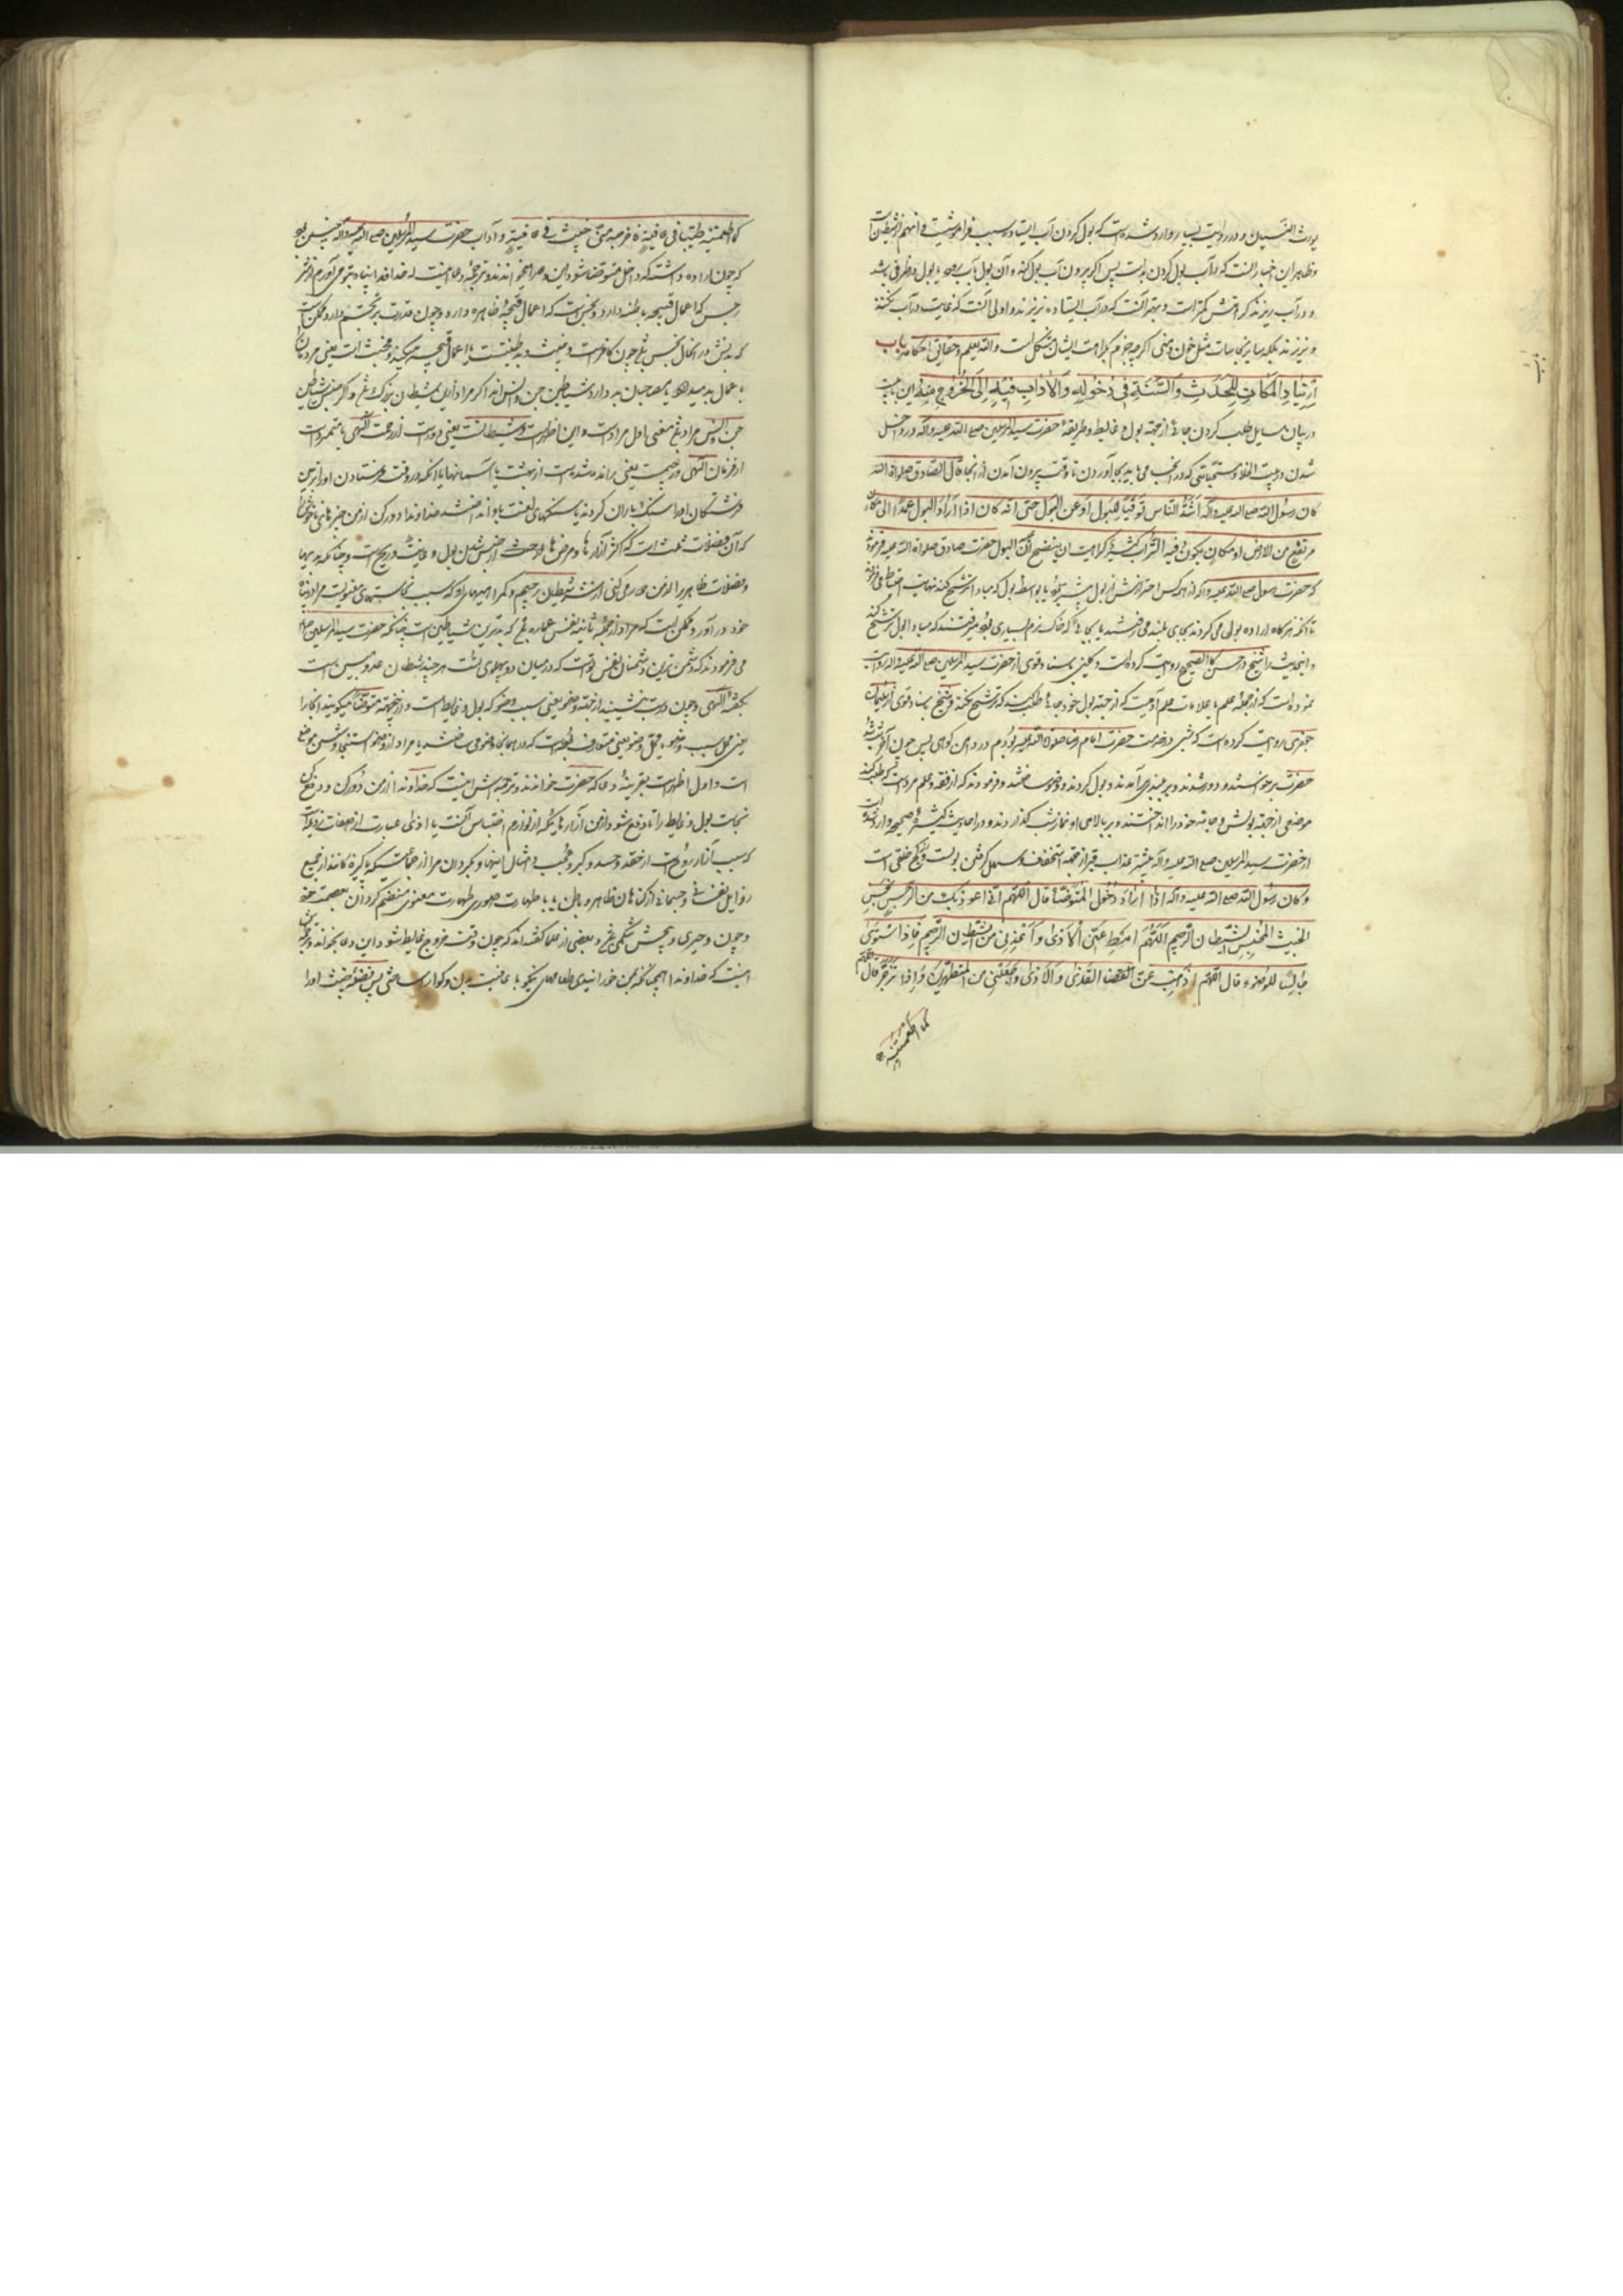 یورث النسیان و در روایت بسیار وارد شده است که بول کردن در آب ایستاده سبب فراموشیست
و ظاهر این اخبار آنست که در آب بول کردن بد است پس اگر بیرون آب بول کنند و آن بول بآب رود یا بول در ظرفی باشد
و در آب ریزند کراهتش کمتر است و بهتر آنست که در آب ایستاده نریزند و اولی آنست که غایت در آب نکنند
و نریزند بلکه سایر نجاسات مثل خون و منی اگر چه جزم بکراهت ایشان مشکل است و الله یعلم و حقایق احکامه باب
ارتیاد المکان للحدث والسنة فی دخوله والآداب فیه الی الخروج منه این بابیست
در بیان مسایل طلب کردن جائی از جهة بول و غایط و طریقهٔ حضرت سید المرسلین صلی الله علیه و آله در داخل
شدن در بیت الخلا و مستحباتی که در آنجا می باید بجا آوردن تا وقت بیرون آمدن از آنجا قال الصادق صلوات الله
کان رسول الله صلی الله علیه و آله اشد الناس توقیا للبول او عن البول حتی انه کان اذا اراد البول عمد الی مکان
مرتفع من الارض او مکان یکون فیه التراب الکثیر کراهیت ان ینضح علیه البول حضرت صادق صلوات الله علیه فرمود
که حضرت رسول صلی الله علیه و آله از همه کس احترازش از بول بیشتر بود یا بواسطه بول که مبادا ترشح کند نهایت احتیاط می فرمودند
تا آنکه هر گاه اراده بولی می کردند بجای بلندی می رفتند یا بجائی که خاک نرم بسیاری بود میرفتند که مبادا بول ترشح کند
و این حدیث را شیخ در حسن کالصحیح روایت کرده است و کلینی بسند قوی از حضرت سید المرسلین صلی الله علیه و آله روایت
نموده است که از جمله علم یا علامات علم آدمیست که از جهة بول خود جائی طلب کند که ترشح نکند و شیخ بسند قوی از سلیمان
جعفری روایت کرده است که شبی در خدمت حضرت امام رضا صلوات الله علیه بودم در دامن کوهی پس چون آخر شب شد
حضرت برخواستند و دور شدند و بر بلندی برآمدند و بول کردند و وضو ساختند و فرمودند که از فقه و علم مرد است که طلب کند
موضعی از جهة بولش و جامه خود را انداختند و بر بالای او نماز شب گذاردند و در احادیث کثیرهٔ صحیحه وارد شده است
از حضرت سید المرسلین صلی الله علیه و آله که بیشتر عذاب قبر از جهة استخفاف و سهل گرفتن بولست و کج خلقی است
و کان رسول الله صلی الله علیه و آله اذا اراد دخول المتوضأ قال اللهم انی اعوذ بک من الرجس النجس
الخبیث المخبث الشیطان الرجیم اللهم امط عنی الاذی و اعذنی من الشیطان الرجیم فاذا استوی
جالسا للوضوء قال اللهم اذهب عنی القذی و الاذی و اجعلنی من المتطهرین و اذا تزحر قال اللهم
کما اطعمتنیه
کما اطعمتنیه طیبا فی عافیة فاخرجه منی خبیثا فی عافیة و آداب حضرت سید المرسلین صلی الله علیه و آله چنین بود
که چون اراده داشت که داخل متوضا شود این دعا میخواندند و ترجمهٔ دعا اینست که خداوندا پناه بتو می آورم از شر
رجس که اعمال قبیحه باطنه دارد و نجس است که اعمال قبیحهٔ ظاهره دارد و چون قدرت بر تجسّم دارد ممکن است
که بدنش در آن حال نجس باشد چون کافر است و خبیث و بد طینتست یا اعمال قبیحه میکند و مخبث است یعنی مردمان را
بعمل بد میدارد یا مصاحبان بد دارد شیاطین جن و انس اند اگر مراد از این شیطان بزرگ باشد و اگر جنس شیاطین
جن و انس مراد باشد معنی اول مراد است و این اظهر است و شیطانست یعنی دور است از رحمت الهی یا متمرد است
از فرمان الهی و رجیمست یعنی رانده شده است از بهشت یا آسمانها یا آنکه در وقت فرستادن او را بزمین
فرشتگان او را سنگ باران کردند یا سنگهای لعنت باو انداختند خداوندا دور کن از من چیزهای ناخوش را
که آن فضلات ثلث است که اکثر آزارها و مرضها حادث از حبس شدن بول و غایط و ریح است و چنانکه بدیها
و فضلات ظاهر را از من دور می کنی از شر شیطان رجیم و مکرها و حیلهای او که سبب نجاستهای معنویست مرا در پناه
خود در آور و ممکن است که مراد از جمله ثانیه نفس اماره باشد که بدترین شیاطین است چنانکه حضرت سید المرسلین صلی الله
می فرمودند که دشمن ترین دشمنان نفس توست که در میان دو پهلوی تست هر چند شیطان عدو مبین است
بگفتهٔ الهی و چون درست بنشینید از جهة وضو یعنی سبب وضو که بول و غایط است و از این جهة متوضأ میگویند آنجا را
یعنی محل سبب وضو یا محل وضو یعنی متعارف بوده است که در همانجا وضو می ساختند یا مراد از وضو استنجا و شستن موضع
است و اول اظهر است بقرینهٔ دعا که حضرت خواندند و ترجمه اش اینست که خداوندا از من دور کن و دفع کن
نجاست بول و غایط را تا دفع شود از من آزارهائیکه از لوازم احتباس آنست یا اذی عبارت از صفات رذیله است
که سبب آزار روح است از حقد و حسد و کبر و عجب و امثال اینها و بگردان مرا از جماعتیکه پاکیزه کانند از جمیع
رذایل نفسانی و جسمانی از گناهان ظاهر و باطن یا با طهارت صوری طهارت معنوی منضم گردان بعصمت خود
و چون زحیری و پیچش شکمی باشد و بعضی از علما گفته اند که چون وقت خروج غایط شود این دعا بخواند و ترجمه اش
اینست که خداوندا همچنانکه بمن خورانیدی طعامهای نیکو با عافیت بدن و گوارا ساختی پس بفضل خبیث او را